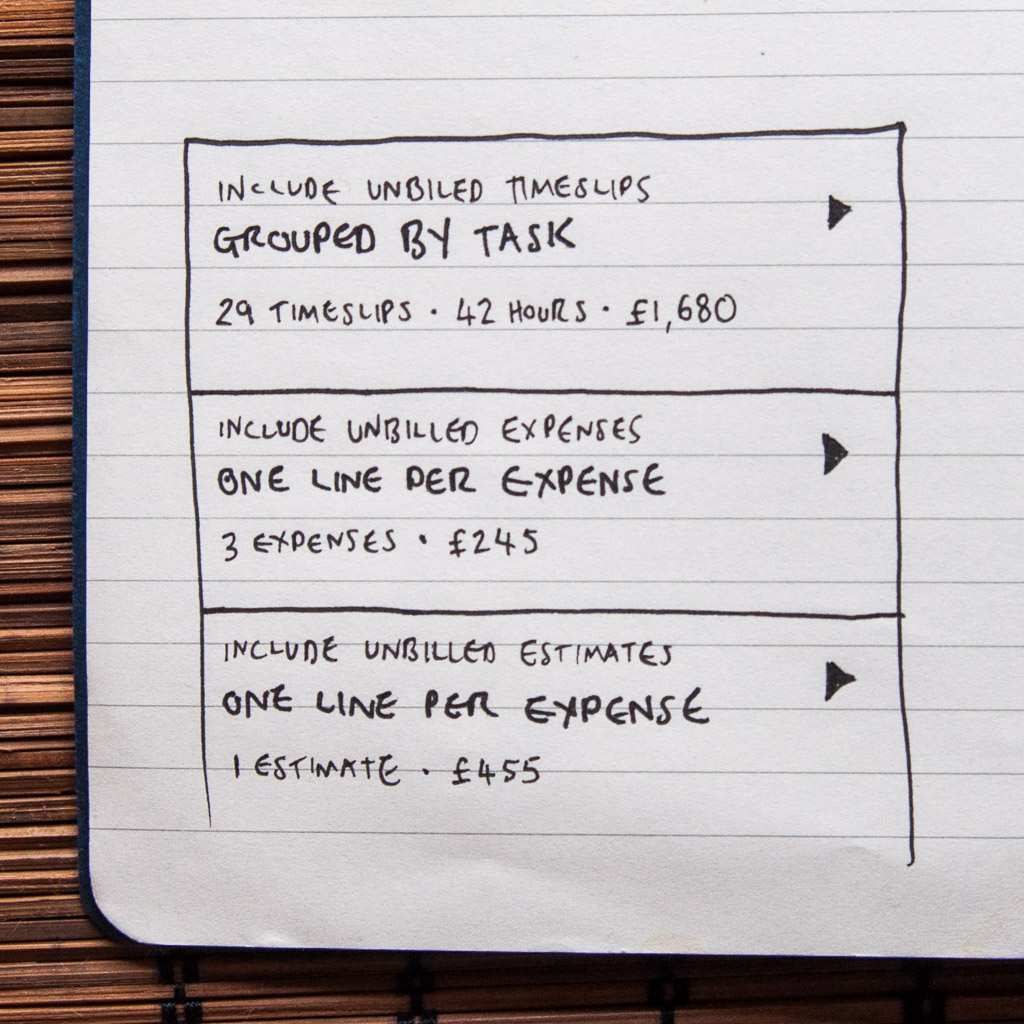 INCLUDE UNBILED TIMESLIPS
GROUPED BY TASK
29 TIMESLIPS · 42 HOURS · £1,680
INCLUDE UNBILLED EXPENSES
ONE LINE PER EXPENSE
3 EXPENSES · £245
INCLUDE UNBILLED ESTIMATES
ONE LINE PER EXPENSE
1 ESTIMATE · £455